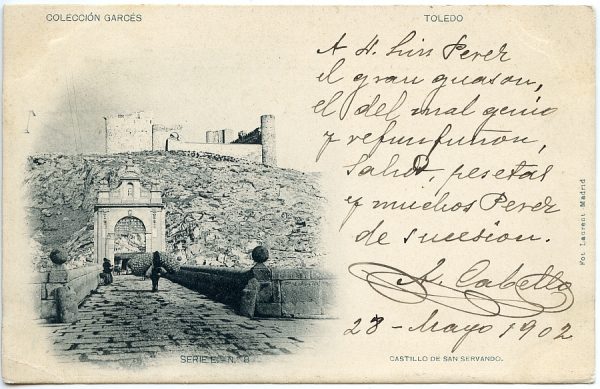 COLECCIÓN GARCÉS
TOLEDO
A D. Luis Perez
el gran guason,
el del mal genio
y refunfuñon,
Salud, pesetas
y muchos Perez
de sucesion.
A. Cabello
28 - Mayo 1902
SERIE E. N. 8
CASTILLO DE SAN SERVANDO.
Fot Laurent Madrid